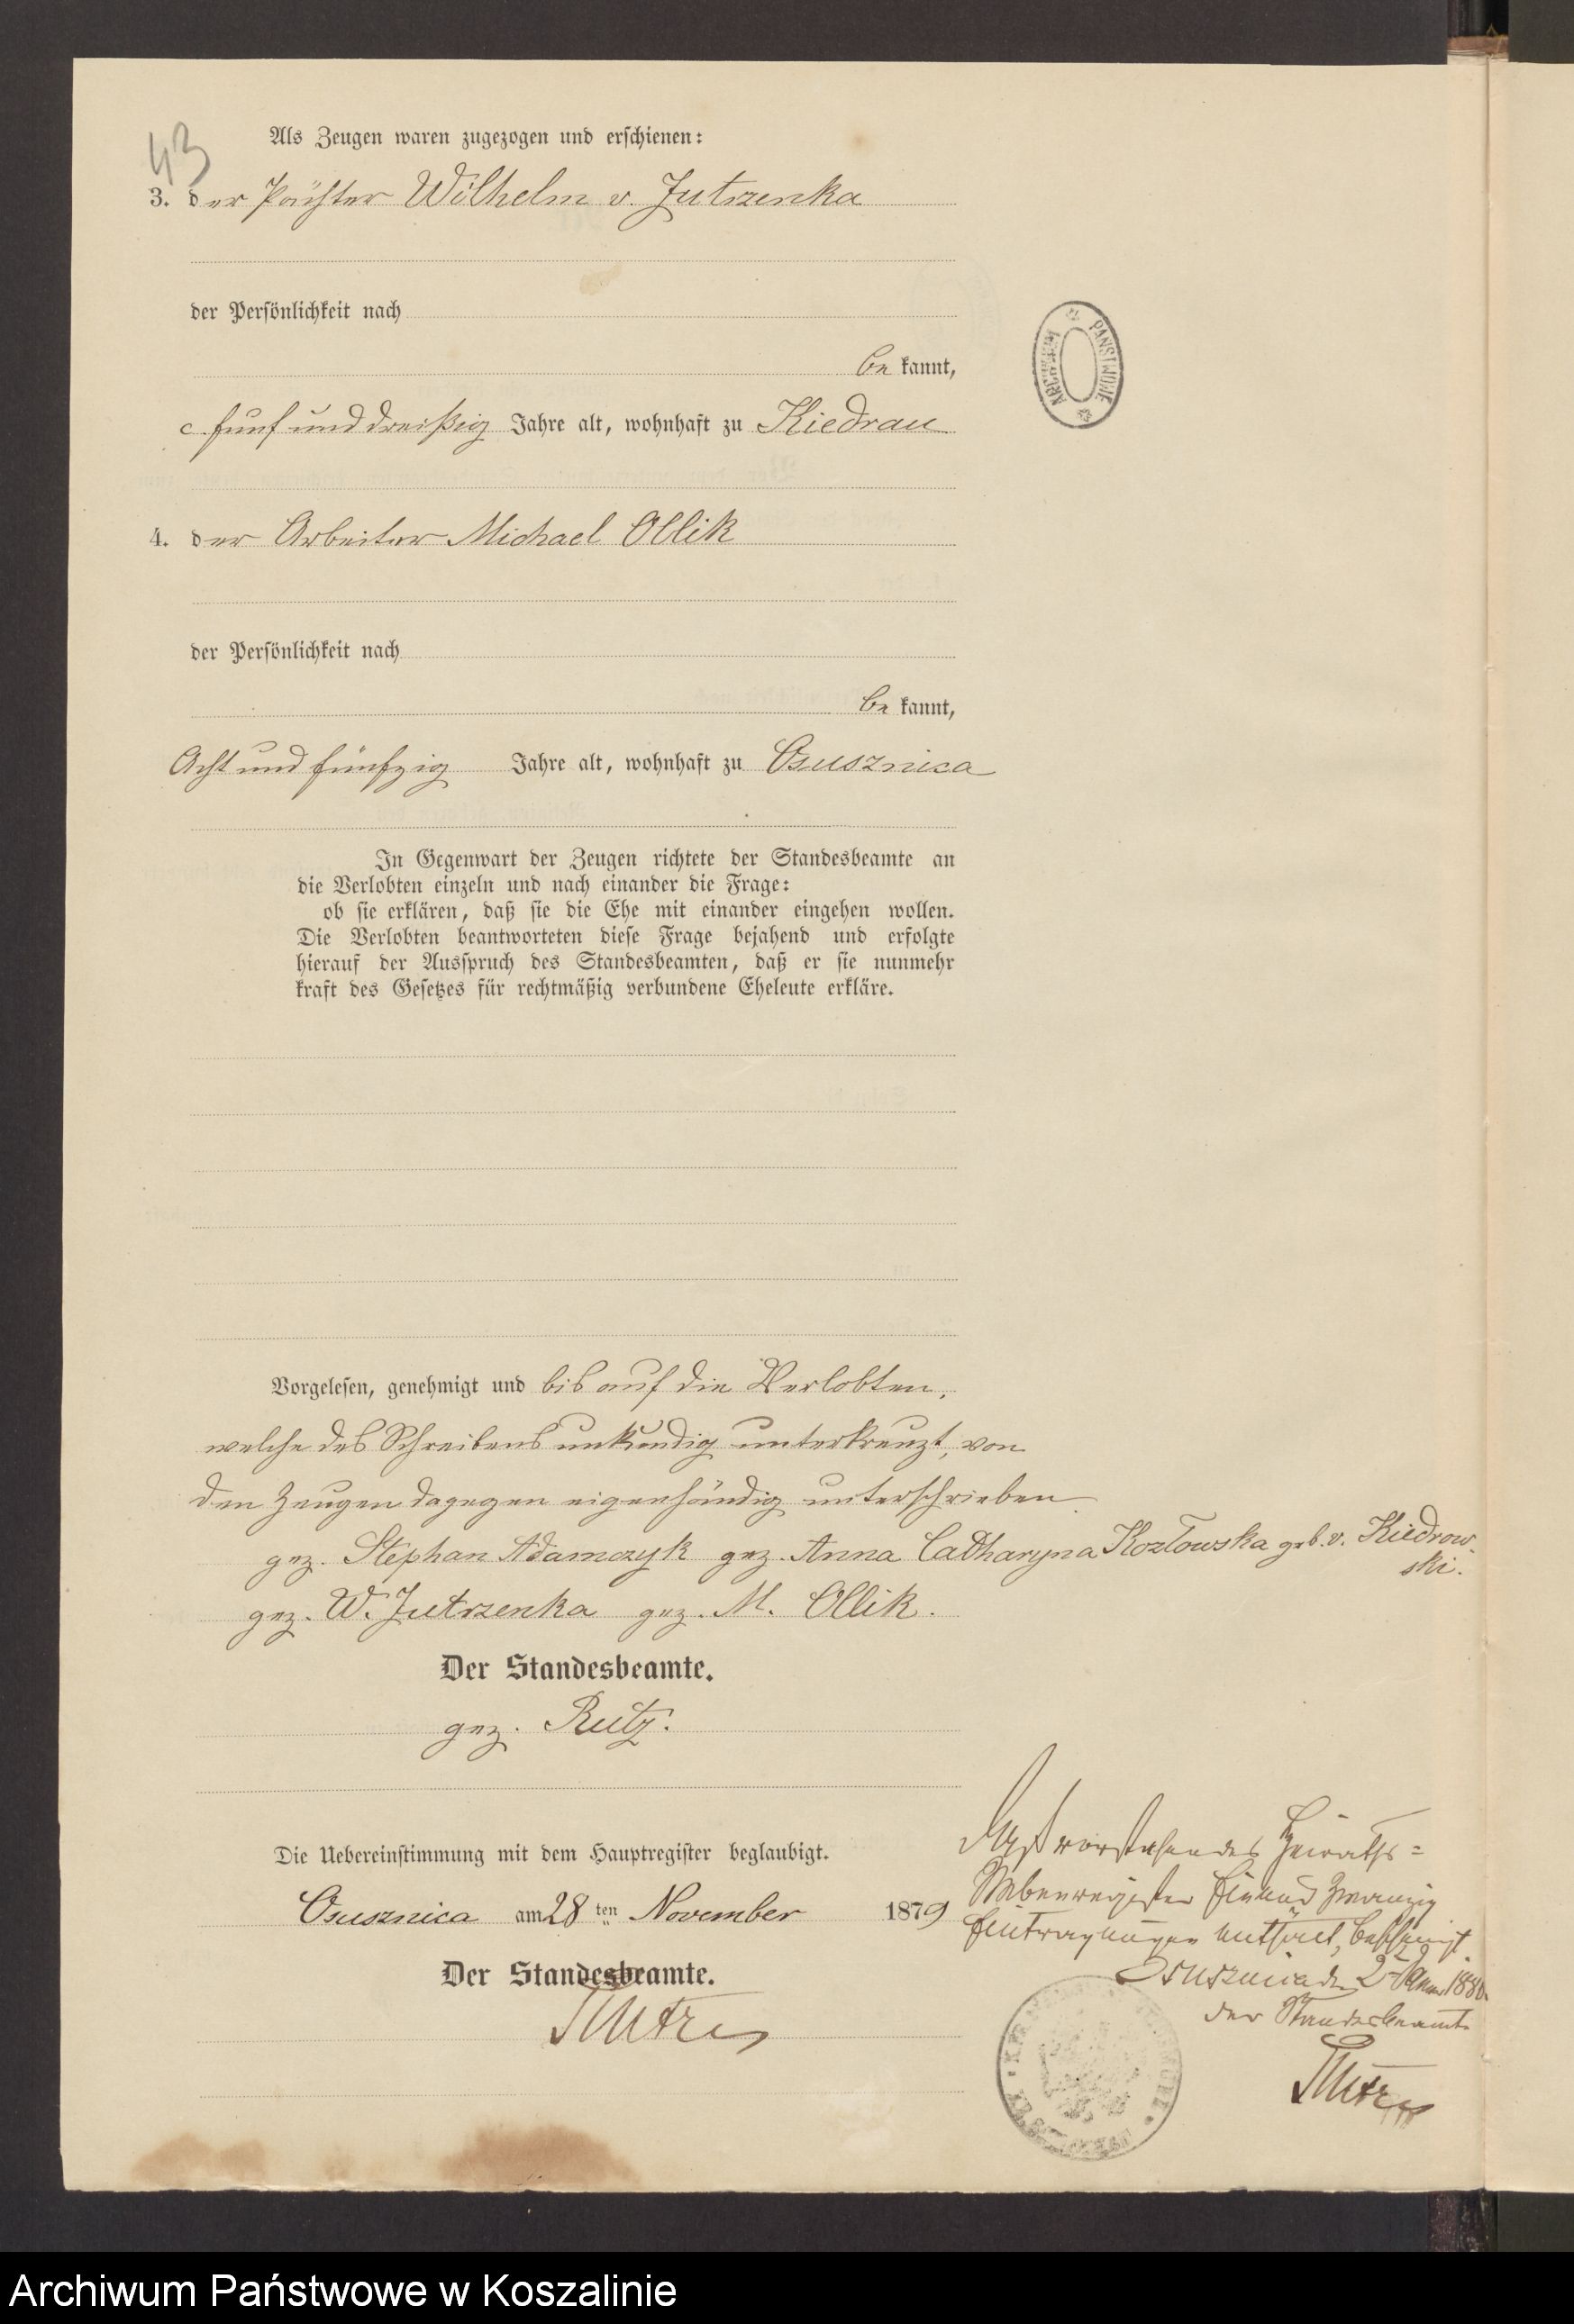 43
Als Zeugen waren zugezogen und erschienen:
3. der Pächter Wilhelm v. Jutrzenka
der Persönlichkeit nach
be kannt,
c. fünf und dreißig Jahre alt, wohnhaft zu Kiedrau
4. der Arbeiter Michael Ollik
der Persönlichkeit nach
be kannt,
Acht und fünfzig Jahre alt, wohnhaft zu Osusznica
In Gegenwart der Zeugen richtete der Standesbeamte an
die Verlobten einzeln und nach einander die Frage:
ob sie erklären, daß sie die Ehe mit einander eingehen wollen.
Die Verlobten beantworteten diese Frage bejahend und erfolgte
hierauf der Ausspruch des Standesbeamten, daß er sie nunmehr
kraft des Gesetzes für rechtmäßig verbundene Eheleute erkläre.
Vorgelesen, genehmigt und bis auf die Verlobten,
welche des Schreibens unkundig unterkreuzt, von
den Zeugen dagegen eigenhändig unterschrieben.
gez. Stephan Adamczyk gez. Anna Catharyna Kozłowska geb. v. Kiedrow-
ski.
gez. W. Jutrzenka gez. M. Ollik.
Der Standesbeamte.
gez. Rutz.
Die Uebereinstimmung mit dem Hauptregister beglaubigt.
Osusznica am 28 ten November 1879
Der Standesbeamte.
Rutz
Daß vorstehendes Heiraths-
Nebenregister Ein und Zwanzig
Eintragungen enthält, bescheinigt.
Osusznica den 2 1880
der Standesbeamte
Rutz
ARCHIWUM PAŃSTWOWE
Archiwum Państwowe w Koszalinie